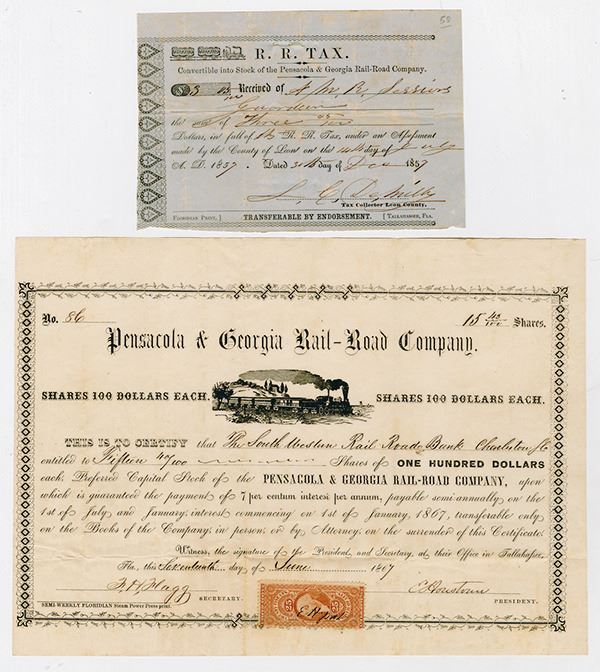 58
R. R. TAX.
Convertible into Stock of the Pensacola & Georgia Rail-Road Company.
$3 Received of A M R Sessions
Guardian
the sum of Three
Dollars, in full of his R. R. Tax, under an Assessment
made by the County of Leon on the 14th day of July
A. D. 1857. Dated 30th day of Dec 1857
Tax Collector Leon County.
FLORIDIAN PRINT,] TRANSFERABLE BY ENDORSEMENT. [TALLAHASSEE, FLA.
No. 86 15 40/100 Shares.
Pensacola & Georgia Rail-Road Company.
SHARES 100 DOLLARS EACH. SHARES 100 DOLLARS EACH.
THIS IS TO CERTIFY that The South Western Rail Road Bank Charleston S C
entitled to Fifteen 40/100 Shares of ONE HUNDRED DOLLARS
each, Preferred Capital Stock of the PENSACOLA & GEORGIA RAIL-ROAD COMPANY, upon
which is guaranteed the payment of 7 per centum interest per annum, payable semi-annually on the
1st of July and January; interest commencing on 1st of January, 1867, transferable only
on the Books of the Company, in person, or by Attorney, on the surrender of this Certificate.
Witness, the signature of the President, and Secretary, at their Office in Tallahassee,
Fla., this Seventeenth day of June
F. H. Flagg SECRETARY. E Houstoun PRESIDENT.
SEMI-WEEKLY FLORIDIAN Steam Power Press print.